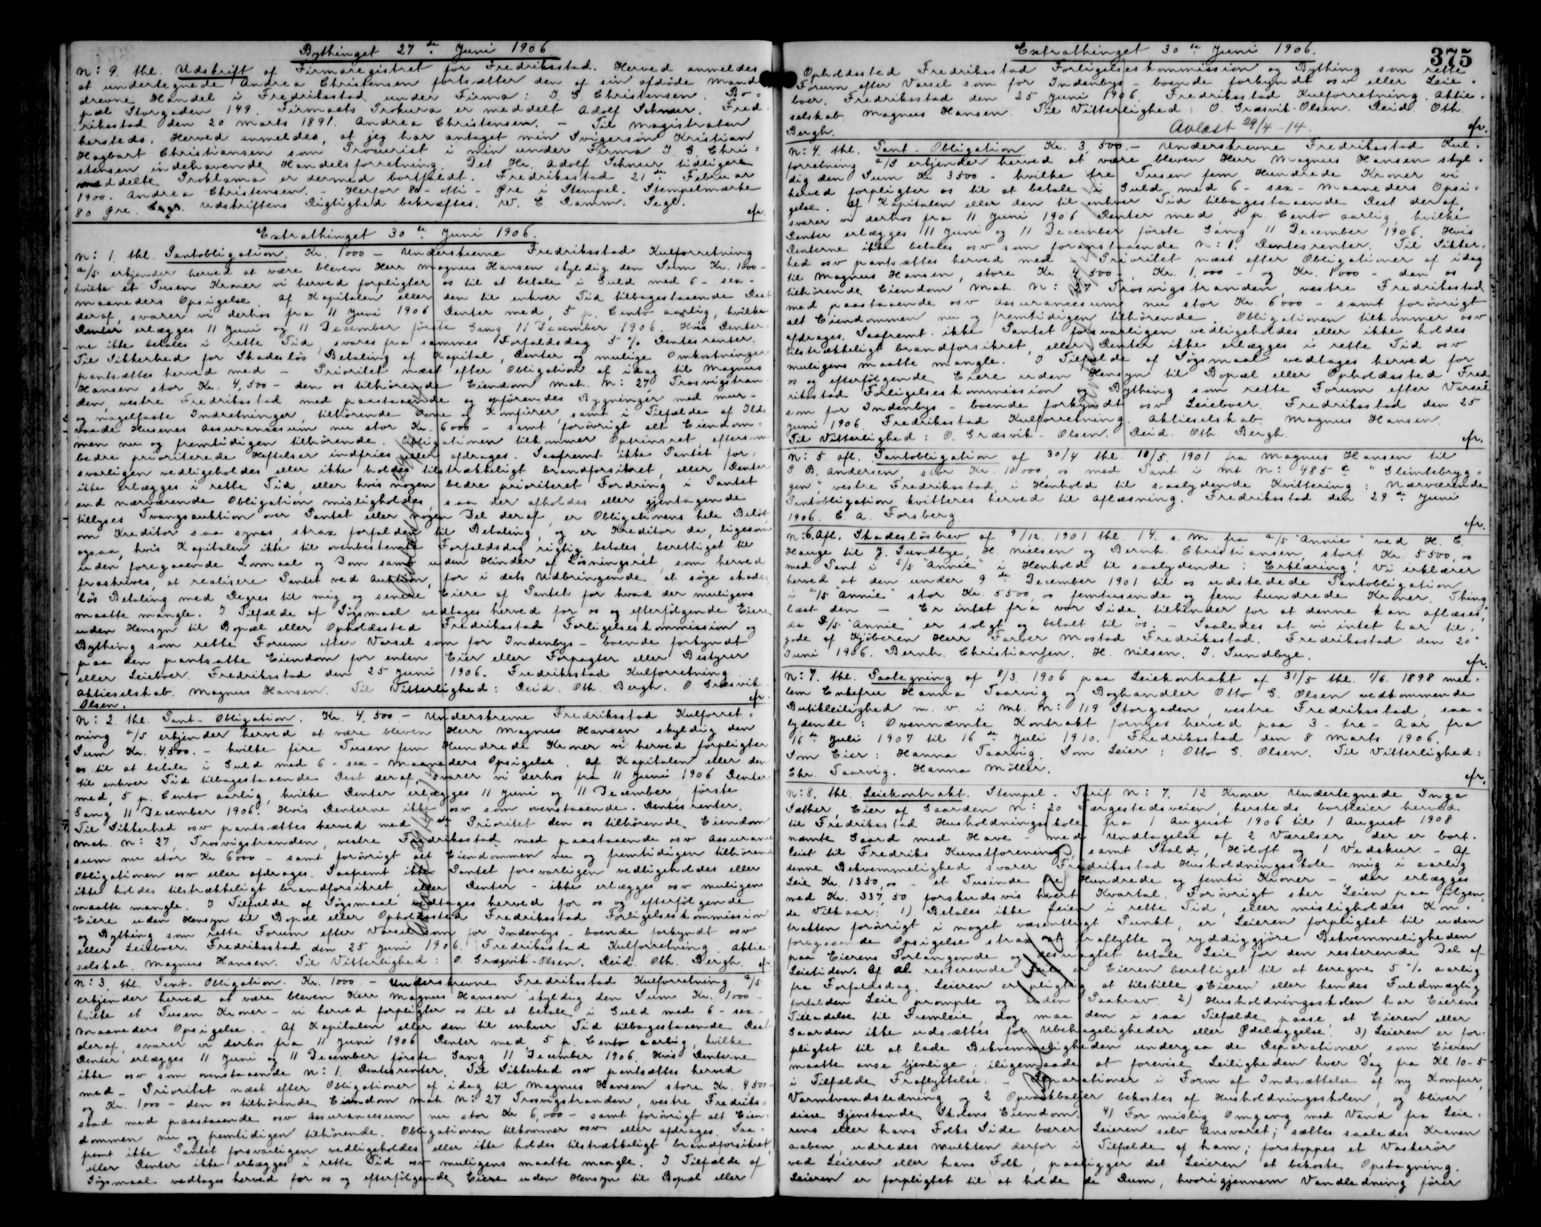 Bythinget 27de Juni 1906
N: 9. thl. Udskrift af Firmaregistret for Fredriksstad. Herved anmeldes
at undertegnede Andrea Christensen fortsætter den af sin afdøde Mand
drevne Handel i Fredriksstad under Firma: J. G. Christensen. Bo-
pæl Storgaden 149. Firmaets Prokura er meddelt Adolf Schner. Fred-
riksstad den 20 marts 1891. Andrea Christensen. - Til Magistraten
hersteds. Herved anmeldes, at jeg har antaget min Svigersøn Kristian
Hagbart Christiansen som Prokurist i min under Firma J. G. Chri-
stensen indehavende Handelsforretning. Det Hr. Adolf Schner tidligere
meddelte Prokura er dermed bortfaldt. Fredriksstad 21de Februar
1900. Andrea Christensen. - Herfor 80 - otti - Øre i Stempel. Stempelmærke
80 Øre. Udskriftens Rigtighed bekræftes. W. C. Damm. Segl.
efr.
Extrathinget 30te Juni 1906.
N: 1. thl. Pantobligation. Kr. 1000 - Underskrevne Fredriksstad Kulforretning
A/S erkjender herved at være bleven Herr Magnus Hansen skyldig den Sum Kr. 1000 -
hvilke et Tusen Kroner vi herved forpligter os til at betale i Guld med 6 - sex -
maaneders Opsigelse. Af Kapitalen eller den til enhver Tid tilbagestaaende Rest
deraf, svarer vi derhos fra 11 Juni 1906 Renter med, 5 p. Cento aarlig, hvilke
Renter erlægges 11 Juni og 11 December første Gang 11 December 1906. Hvis Renter-
ne ikke betales i rette Tid, svares fra sammes Forfaldsdag 5 % Rentesrenter.
Til Sikkerhed for Skadesløs Betaling af Kapital, Renter og mulige Omkostninger
pantsættes herved med - Prioritet næst efter Obligation af idag til Magnus
Hansen stor Kr. 4,500 - den os tilhørende Eiendom mat. N: 27, Trosvigstran-
den vestre Fredriksstad med paastaaende og opførendes Bygninger med mur-
og nagelfaste Indretninger, tilhørende Ovne og Komfurer samt i Tilfælde af Ilds-
vaade Husenes Assurancesum nu stor Kr. 6000 - samt forøvrigt alt Eiendom-
men nu og fremtidigen tilhørende. Obligationen tilkommer Optrinsret, eftersom
bedre prioriterede Heftelser indfries eller afdrages. Saafremt ikke Pantet for-
svarligen vedligeholdes eller ikke holdes tilstrækkeligt brandforsikret, eller Renter
ikke erlægges i rette Tid, eller hvis nogen bedre prioriteret Fordring i Pantet
end nærværende Obligation misligholdes, saa der afholdes eller gjentagende
tillyses Tvangsauktion over Pantet eller nogen Del deraf, er Obligationens hele Beløb
om Kreditor saa synes, strax forfalden til Betaling, og er Kreditor da, ligesom
ogsaa, hvis Kapitalen ikke til ovenbestemte Forfaldsdag rigtig betales, berettiget til
uden foregaaende Lovmaal og Dom samt uden Hinder af Løsningsret, som herved
fraskrives, at realisere Pantet ved Auktion, for i dets Udbringende at søge skades-
løs Betaling med Regres til mig og senere Eiere af Pantet for hvad der muligens
maatte mangle. I Tilfælde af Søgsmaal vedtages herved for os og efterfølgende Eiere
uden Hensyn til Bopæl eller Opholdssted Fredriksstad Forligelseskommission og
Bything som rette Forum efter Varsel som for Indenbys - boende forkyndt
paa den pantsatte Eiendom for enten Eier eller Forpagter eller Bestyrer
eller Leieboer. Fredriksstad den 25 Juni 1906. Fredriksstad Kulforretning
Aktieselskab. Magnus Hansen. Til Vitterlighed: Reid. Oth. Bergh. O. Græsvik-
Olsen.
efr.
N: 2. thl. Pant-Obligation. Kr. 4,500 - Underskrevne Fredriksstad Kulforret-
ning A/S erkjender herved at være bleven Herr Magnus Hansen skyldig den
Sum Kr. 4500. - hvilke fire Tusen fem Hundrede Kroner vi herved forpligter
os til at betale i Guld med 6 - sex - Maaneders Opsigelse. Af Kapitalen eller den
til enhver Tid tilbagestaaende Rest deraf, svarer vi derhos fra 11 Juni 1906 Renter
med, 5 p. Cento aarlig, hvilke Renter erlægges 11 Juni og 11 December, første
Gang 11 December 1906. Hvis Renterne ikke osv som ovenstaaende. Rentesrenter.
Til Sikkerhed osv pantsættes herved med Prioritet den os tilhørende Eiendom
mat. N: 27, Trosvigstranden, vestre Fredriksstad med paastaaende osv Assurance-
sum nu stor Kr 6000 - samt forøvrigt alt Eiendommen nu og fremtidigen tilhørende
Obligationen osv eller afdrages. Saafremt ikke Pantet forsvarligen vedligeholdes eller
ikke holdes tilstrækkeligt brandforsikret, eller Renter - ikke erlægges osv muligens
maatte mangle. I Tilfælde af Søgsmaal vedtages herved for os og efterfølgende
Eiere uden Hensyn til Bopæl eller Opholdssted Fredriksstad Forligelseskommission
og Bything som rette Forum efter Varsel som for Indenbys - boende forkyndt osv
eller Leieboer. Fredriksstad den 25 Juni 1906. Fredriksstad Kulforretning Aktie-
selskab. Magnus Hansen. Til Vitterlighed: O. Græsvik-Olsen. Reid. Oth. Bergh. efr.
N: 3. thl. Pant. Obligation. Kr. 1000. - Underskrevne Fredriksstad Kulforretning A/S
erkjender herved at være bleven Herr Magnus Hansen skyldig den Sum Kr. 1000 -
hvilke et Tusen Kroner - vi herved forpligter os til at betale i Guld med 6 - sex -
Maaneders Opsigelse. - Af Kapitalen eller den til enhver Tid tilbagestaaende Rest
deraf, svarer vi derhos fra 11 Juni 1906 Renter med 5 p. Cento aarlig, hvilke
Renter erlægges 11 Juni og 11 December første Gang 11 December 1906. Hvis Renterne
ikke osv som ovenstaaende N: 1. Rentesrenter. Til Sikkerhed osv pantsættes herved
med - Prioritet næst efter Obligationer af idag til Magnus Hansen store Kr. 4500 -
og Kr. 1000 - den os tilhørende Eiendom mat N: 27 Trosvigstranden, vestre Fredriks-
stad med paastaaende osv Assurancesum nu stor Kr 6,000 - samt forøvrigt alt Eien-
dommen nu og fremtidigen tilhørende. Obligationen tilkommer osv eller afdrages. Saa-
fremt ikke Pantet forsvarligen vedligeholdes eller ikke holdes tilstrækkeligt brandforsikret,
eller Renter ikke erlægges i rette Tid osv muligens maatte mangle. I Tilfælde af
Søgsmaal vedtages herved for os og efterfølgende Eiere uden Hensyn til Bopæl eller
Extrathinget 30te Juni 1906.
375
Opholdssted Fredriksstad Forligelseskommission og Bything som rette
Forum efter Varsel som for Indenbys boende forkyndt osv eller Leie-
boer. Fredriksstad den 25 Juni 1906. Fredriksstad Kulforretning Aktie-
selskab. Magnus Hansen. Til Vitterlighed: O. Græsvik-Olsen. Reid. Oth.
Bergh.
Avlæst 29/4-14.
efr.
N: 4. thl. Pant-Obligation Kr. 3,500. - Underskrevne Fredriksstad Kul-
forretning A/S erkjender herved at være bleven Herr Magnus Hansen skyl-
dig den Sum Kr 3500 - hvilke tre Tusen fem Hundrede Kroner vi
herved forpligter os til at betale i Guld med 6 - sex - Maaneders Opsi-
gelse. Af Kapitalen eller den til enhver Tid tilbagestaaende Rest deraf,
svarer vi derhos fra 11 Juni 1906 Renter med, 5 p. Cento aarlig, hvilke
Renter erlægges 11 Juni og 11 December første Gang 11 December 1906. Hvis
Renterne ikke betales osv som foranstaaende N: 1. Rentesrenter. Til Sikker-
hed osv pantsættes herved med - Prioritet næst efter Obligationer af idag
til Magnus Hansen, store Kr. 4,500 -, Kr. 1,000 - og Kr. 1000 - den os
tilhørende Eiendom Mat. N: 27 Trosvigstranden, vestre Fredriksstad
med paastaaende osv Assurancesum nu stor Kr. 6000 - samt forøvrigt
alt Eiendommen nu og fremtidigen tilhørende. Obligationen tilkommer osv
afdrages. Saafremt ikke Pantet forsvarligen vedligeholdes eller ikke holdes
tilstrækkeligt brandforsikret, eller Renter ikke erlægges i rette Tid osv
muligens maatte mangle. I Tilfælde af Søgsmaal vedtages herved for
os og efterfølgende Eiere uden Hensyn til Bopæl eller Opholdssted Fred-
riksstad Forligelseskommission og Bything som rette Forum efter Varsel
som for Indenbys - boende forkyndt osv Leieboer. Fredriksstad den 25
Juni 1906. Fredriksstad Kulforretning. Aktieselskab. Magnus Hansen.
Til Vitterlighed: O. Græsvik-Olsen. Reid. Oth. Bergh.
efr.
N: 5. afl. Pantobligation af 30/4 thl. 10/5. 1901 fra Magnus Hansen til
P. B. Andersen, stor Kr. 10,000, os med Pant i mt N: 485 c "Glimtebryg-
gen" vestre Fredriksstad, i Henhold til saalydende Kvittering: Nærværende
Pantobligation kvitteres herved til Aflæsning. Fredriksstad den 29de Juni
1906. C. A. Torsberg
efr.
N: 6. Afl. Skadesløsbrev af 9/12. 1901 thl. 14. s. M. fra A/S "Annie" ved H. C.
Hauge til J. Sundbye, H. Nielsen og Bernh. Christiansen, stort Kr. 5500, os
med Pant i S/S "Annie" i Henhold til saalydende: Erklæring! Vi erklærer
herved at den under 9de December 1901 til os udstedede Pantobligation
i S/S "Annie" stor Kr. 5500, os femtusende og fem hundrede Kroner. Thing-
læst den - Er intet fra vor Side tilhinder for at denne kan aflæses,
da S/S "Annie" er solgt og betalt til os. - Saaledes at vi intet har til-
gode af Kjøberen Herr Farber Mostad Fredriksstad. Fredriksstad den 20de
Juni 1906. Bernh. Christiansen. H. Nilsen. J. Sundbye.
efr.
N: 7. thl. Paategning af 8/3. 1906 paa Leiekontrakt af 31/5 thl. 7/6. 1898 mel-
lem Enkefru Hanna Taarvig og Boghandler Otto G. Olsen vedkommende
Butikleilighed m. v. i mt. N: 119 Storgaden vestre Fredriksstad, saa-
lydende: Ovennævnte Kontrakt fornyes herved paa 3 - tre - Aar fra
16de Juli 1907 til 16de Juli 1910. Fredriksstad den 8 Marts 1906.
Som Eier: Hanna Taarvig. Som Leier: Otto G. Olsen. Til Vitterlighed:
Chr. Taarvig. Hanna Møller.
efr.
N: 8. thl. Leiekontrakt. Stempel. Tarif N: 7. 12 Kroner. Undertegnede Inga
Sæther, Eier af Gaarden N: 20 Færgestedsveien hersteds bortleier herved
til Fredriksstad Husholdningsskole fra 1 August 1906 til 1 August 1908
nævnte Gaard med Have - med Undtagelse af 2 Værelser, der er bort-
leiet til Fredriks Kunstforening, samt Stald, Høloft og 1 Vedskur. - Af
denne Bekvemmelighed svarer Fredriksstad Husholdningsskole mig i aarlig
Leie Kr. 1350,00 - et Tusinde tre Hundrede og femti Kroner - der erlægges
med Kr. 337,50 forskudsvis hvert Kvartal. Forøvrigt sker Leien paa følgen-
de Vilkaar: 1) Betales ikke Leien i rette Tid, eller misligholdes Kon-
trakten forøvrigt i noget væsentligt Punkt, er Leieren forpligtet til uden
foregaaende Opsigelse strax at fraflytte og ryddiggjøre Bekvemmeligheden
paa Eierens Forlangende og desuagtet betale Leie for den resterende Del af
Leietiden. Af al resterende Leie er Eieren berettiget til at beregne 5 % aarlig
fra Forfaldsdag. Leieren er pligtig at tilstille Eieren eller hendes Fuldmægtig
forfalden Leie prompte og uden Paakrav. 2) Husholdningsskolen har Eierens
Tilladelse til Fremleie, dog maa den i saa Tilfælde passe at Eieren eller
Gaarden ikke udsættes for Ubehageligheder eller Ødelæggelse. 3) Leieren er for-
pligtet til at lade Bekvemmeligheden undergaa de Reparationer som Eieren
maatte anse tjenlige, iligemaade at forevise Leiligheden hver Dag fra Kl. 10-5
i Tilfælde Fraflyttelse. - Reparationer i Form af Indsættelse af ny Komfur,
Varmtvandsledning og 2 Opvaskbaljer bekostes af Husholdningsskolen, og bliver
disse Gjenstande Skolens Eiendom. 4) For mislig Omgang med Vand fra Leie-
rens eller hans Folks Side bærer Leieren selv Ansvaret; sættes saaledes Kranen
aaben, udredes mulkten derfor i Tilfælde af ham; forstoppes et Vaskerør
ved Leieren eller hans Folk, paaligger det Leieren at bekoste Optagning.
Leieren er forpligtet til at holde de Rum, hvorigjennem Vandledning fører